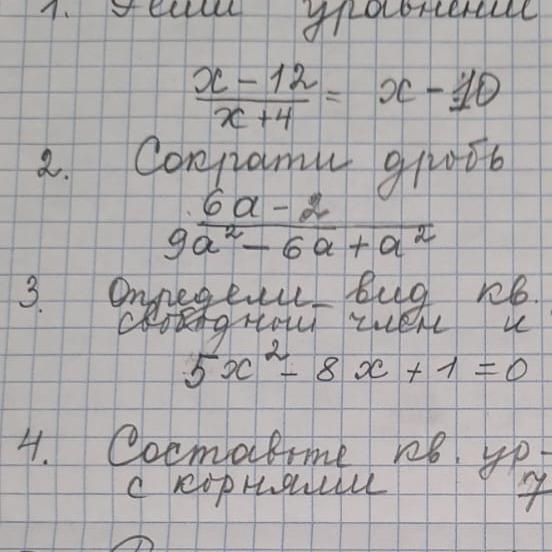 1. Реши уравнение
x - 12
x + 4 = x - 10
2. Сократи дробь
6a - 2
9a² - 6a + a²
3. Определи вид кв.
свободный член и
5x² - 8x + 1 = 0
4. Составьте кв. ур-
с корнями 7